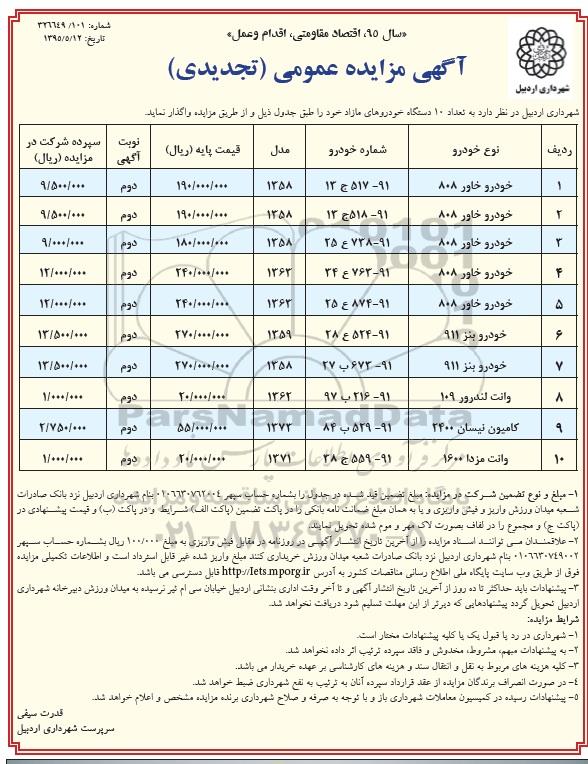 شماره: ۱۰۱/ ۳۲۶۶۴۹
تاریخ: ۱۳۹۵/۵/۱۲
«سال ۹۵، اقتصاد مقاومتی، اقدام وعمل»
آگهی مزایده عمومی (تجدیدی)
شهرداری اردبیل
شهرداری اردبیل در نظر دارد به تعداد ۱۰ دستگاه خودروهای مازاد خود را طبق جدول ذیل و از طریق مزایده واگذار نماید.
ردیف نوع خودرو شماره خودرو مدل قیمت پایه (ریال) نوبت آگهی سپرده شرکت در مزایده (ریال)
۱ خودرو خاور ۸۰۸ ۹۱- ۵۱۷ ج ۱۳ ۱۳۵۸ ۱۹۰/۰۰۰/۰۰۰ دوم ۹/۵۰۰/۰۰۰
۲ خودرو خاور ۸۰۸ ۹۱- ۵۱۸ج ۱۳ ۱۳۵۸ ۱۹۰/۰۰۰/۰۰۰ دوم ۹/۵۰۰/۰۰۰
۳ خودرو خاور ۸۰۸ ۹۱-۷۳۸ ع ۲۵ ۱۳۵۸ ۱۸۰/۰۰۰/۰۰۰ دوم ۹/۰۰۰/۰۰۰
۴ خودرو خاور ۸۰۸ ۹۱-۷۶۳ ع ۳۴ ۱۳۶۳ ۲۴۰/۰۰۰/۰۰۰ دوم ۱۲/۰۰۰/۰۰۰
۵ خودرو خاور ۸۰۸ ۹۱-۸۷۴ ع ۲۵ ۱۳۶۳ ۲۴۰/۰۰۰/۰۰۰ دوم ۱۲/۰۰۰/۰۰۰
۶ خودرو بنز ۹۱۱ ۹۱-۵۲۴ ع ۲۸ ۱۳۵۹ ۲۷۰/۰۰۰/۰۰۰ دوم ۱۳/۵۰۰/۰۰۰
۷ خودرو بنز ۹۱۱ ۹۱- ۶۷۳ ب ۲۷ ۱۳۵۸ ۲۷۰/۰۰۰/۰۰۰ دوم ۱۳/۵۰۰/۰۰۰
۸ وانت لندرور ۱۰۹ ۹۱- ۲۱۶ ب ۹۷ ۱۳۶۲ ۲۰/۰۰۰/۰۰۰ دوم ۱/۰۰۰/۰۰۰
۹ کامیون نیسان ۲۴۰۰ ۹۱- ۵۲۹ ب ۸۴ ۱۳۷۲ ۵۵/۰۰۰/۰۰۰ دوم ۲/۷۵۰/۰۰۰
۱۰ وانت مزدا ۱۶۰۰ ۹۱- ۵۵۹ ج ۳۸ ۱۳۷۱ ۲۰/۰۰۰/۰۰۰ دوم ۱/۰۰۰/۰۰۰
ParsNamadData
۱- مبلغ و نوع تضمین شرکت در مزایده: مبلغ تضمین قید شده در جدول را بشماره حساب سپهر ۰۱۰۶۶۳۰۷۶۲۰۰۴ بنام شهرداری اردبیل نزد بانک صادرات
شعبه میدان ورزش واریز و فیش واریزی و یا به همان مبلغ ضمانت نامه بانکی را در پاکت تضمین (پاکت الف) شرایط و در پاکت (ب) و قیمت پیشنهادی در
(پاکت ج) و مجموع را در لفاف بصورت لاک و مهر و موم شده تحویل نمایند.
۲- علاقمندان می توانند اسناد مزایده را از آخرین تاریخ انتشار آگهی در روزنامه در مقابل فیش واریزی به مبلغ ۱۰۰/۰۰۰ ریال بشماره حساب سپهر
۰۱۰۶۶۳۰۷۴۹۰۰۲ بنام شهرداری اردبیل نزد بانک صادرات شعبه میدان ورزش خریداری کنند مبلغ واریز شده غیر قابل استرداد است و اطلاعات تکمیلی مزایده
فوق از طریق وب سایت پایگاه ملی اطلاع رسانی مناقصات کشور به آدرس http://Iets.mporg.ir قابل دسترسی می باشد.
۳- پیشنهادات باید حداکثر تا ده روز از آخرین تاریخ انتشار آگهی و تا آخر وقت اداری بنشانی اردبیل خیابان سی ام تیر نرسیده به میدان ورزش دبیرخانه شهرداری
اردبیل تحویل گردد پیشنهادهایی که دیرتر از این مهلت تسلیم شود دریافت نخواهد شد.
شرایط مزایده:
۱- شهرداری در رد یا قبول یک یا کلیه پیشنهادات مختار است.
۲- به پیشنهادات مبهم، مشروط، مخدوش و فاقد سپرده ترتیب اثر داده نخواهد شد.
۳- کلیه هزینه های مربوط به نقل و انتقال سند و هزینه های کارشناسی بر عهده خریدار می باشد.
۴- در صورت انصراف برندگان مزایده از عقد قرارداد سپرده آنان به ترتیب به نفع شهرداری ضبط خواهد شد.
۵- پیشنهادات رسیده در کمیسیون معاملات شهرداری باز و با توجه به صرفه و صلاح شهرداری برنده مزایده مشخص و اعلام خواهد شد.
قدرت سیفی
سرپرست شهرداری اردبیل